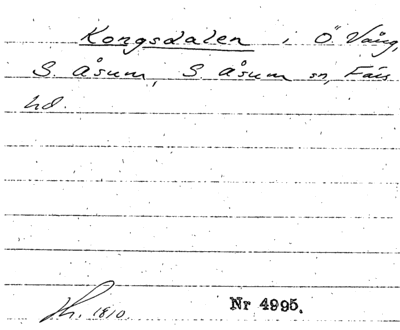 Kongsdalen i Ö Vång,
S. Åsum, S Åsum sn, Färs
hd.
1810.
Nr 4995.